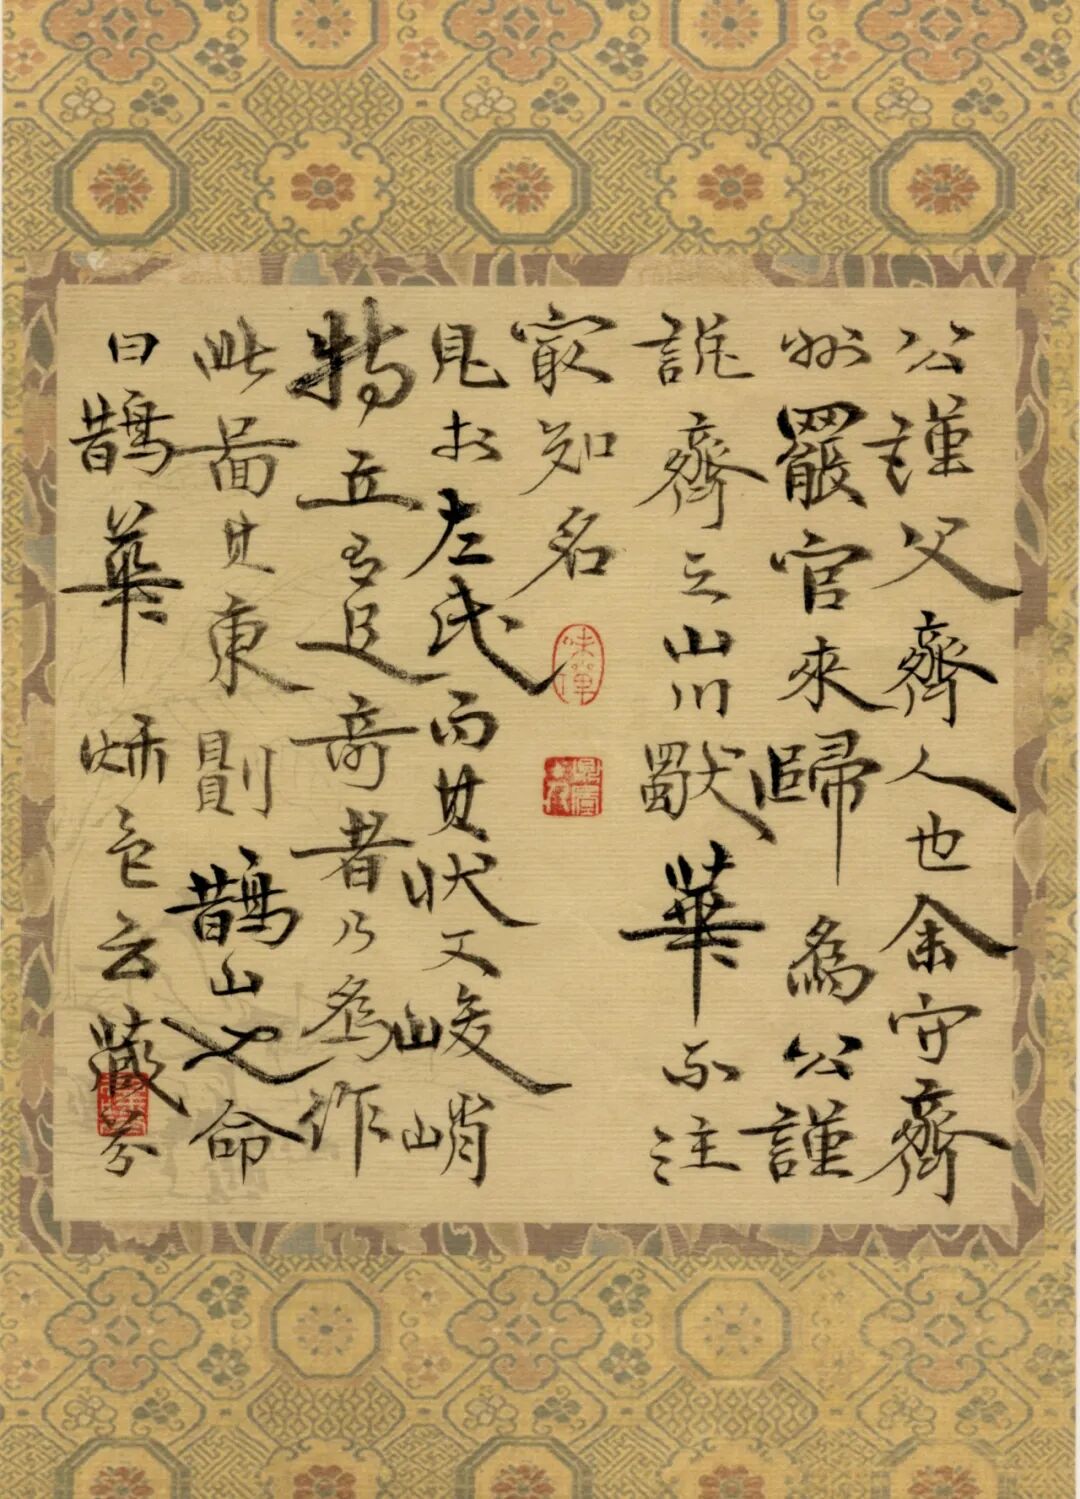 公謹父齊人也余守齊
州罷官來歸為公謹
說齊之山川獨華不注
最知名
見於左氏而其狀又峻峭
特立有足奇者乃為作
此圖其東則鵲山也命
曰鵲華秋色云藏芬